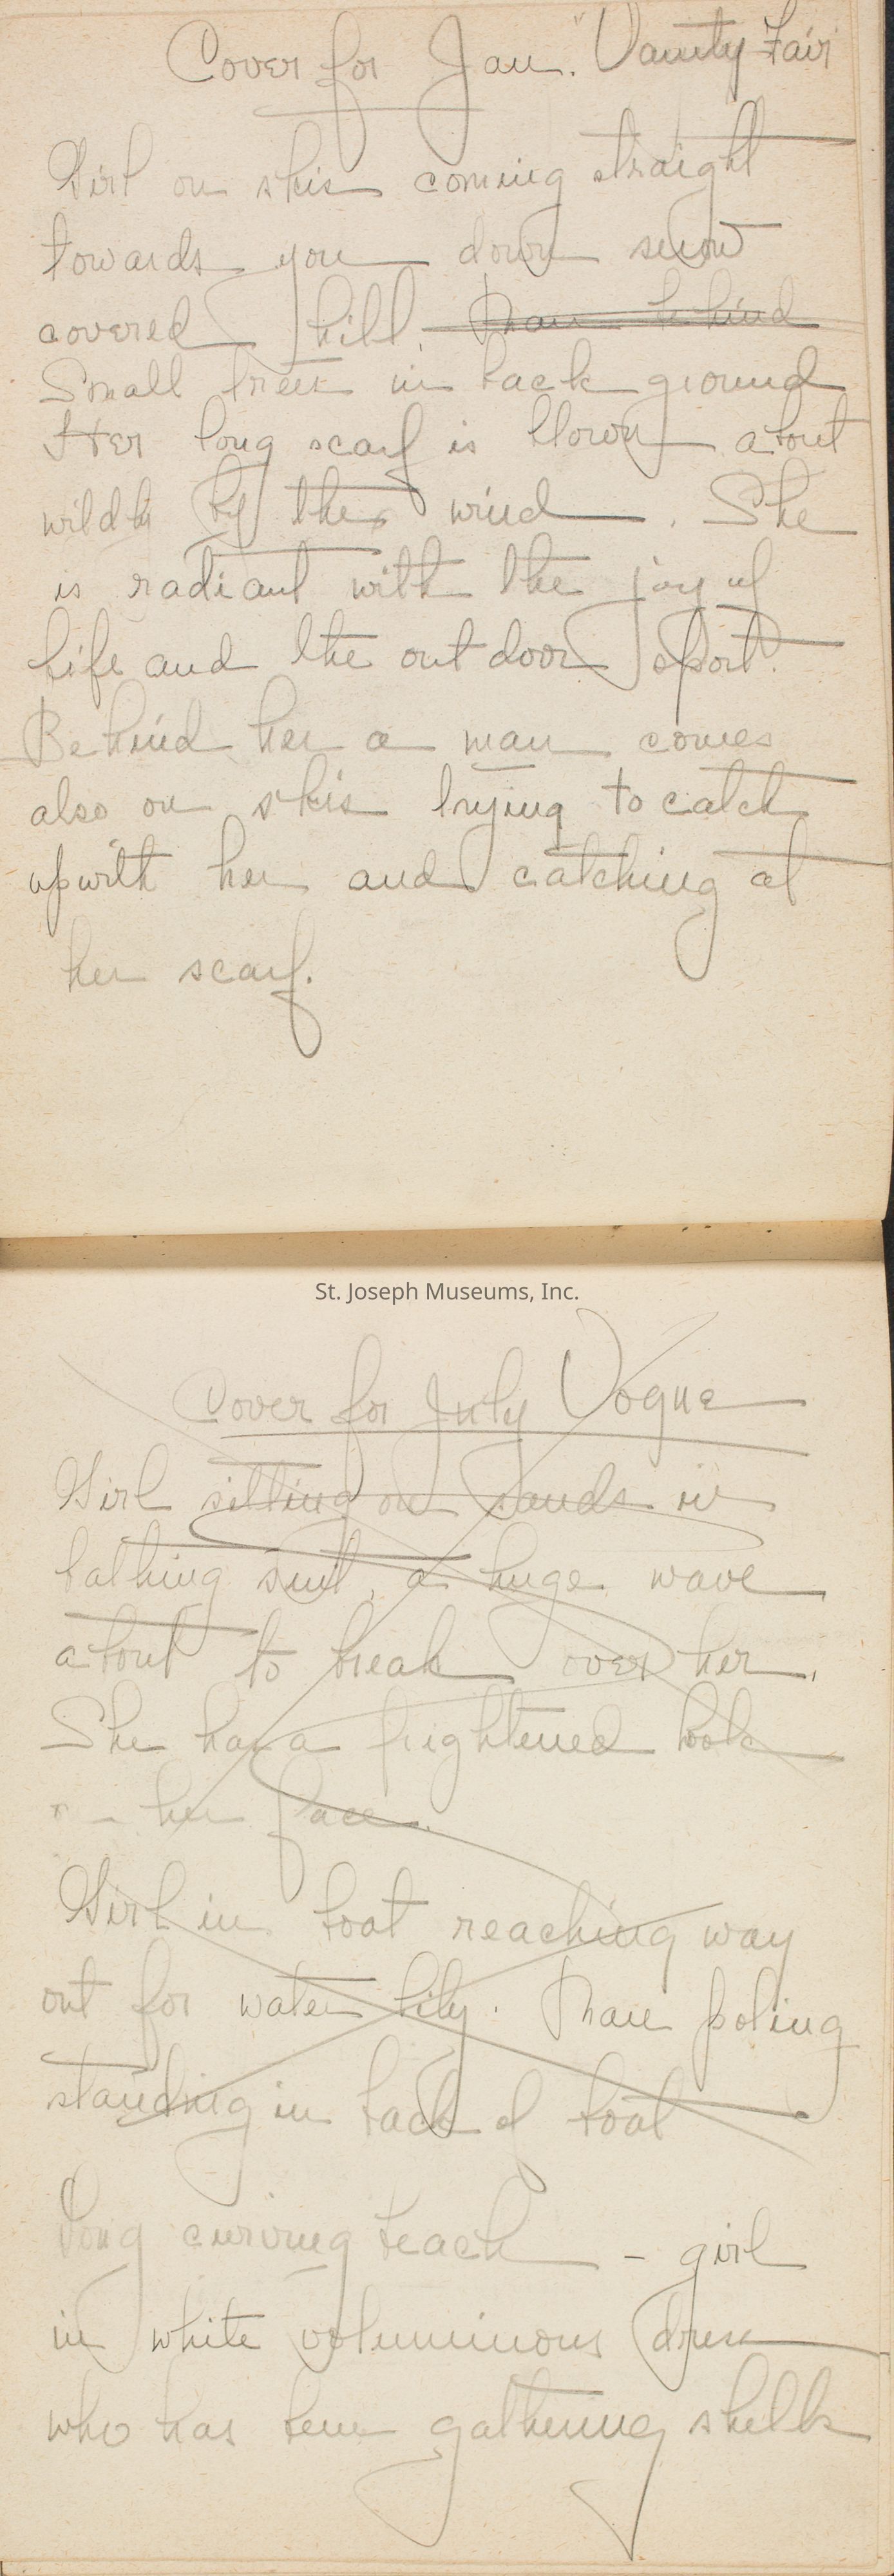 Cover for Jan. "Vanity Fair
Girl on skis coming straight
towards you down snow
covered hill. Man behind
Small trees in back ground
Her long scarf is blown about
wildly by the wind. She
is radiant with the joy of
life and the out door sport.
Behind her a man comes
also on skis trying to catch
up with her and catching at
her scarf.
St. Joseph Museums, Inc.
Cover for July Vogue
Girl sitting on sands in
bathing suit, a huge wave
about to break over her.
She has a frightened look
her face.
Girl in boat reaching way
out for water lily. Man poling
standing in back of boat
Long curving beach - girl
in white voluminous dress
who has been gathering shells